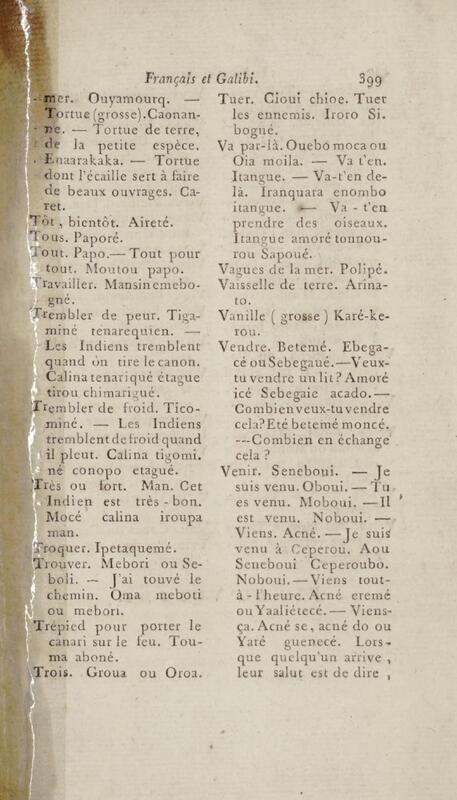 Français et Galibi. 399
mer. Ouyamourq. —
Tortue (grosse). Caonan-
ne. — Tortue de terre,
de la petite espèce.
Enaarakaka. — Tortue
dont l'écaille sert à faire
de beaux ouvrages. Ca-
ret.
Tôt, bientôt. Aireté.
Tous. Paporé.
Tout. Papo. — Tout pour
tout. Moutou papo.
Travailler. Mansinemebo-
gné.
Trembler de peur. Tiga-
miné tenarequien. —
Les Indiens tremblent
quand on tire le canon.
Calina tenariqué étague
tirou chimarigué.
Trembler de froid. Tico-
miné. — Les Indiens
tremblent de froid quand
il pleut. Calina tigomi.
né conopo etagué.
Très ou fort. Man. Cet
Indien est très-bon.
Mocé calina iroupa
man.
Troquer. Ipetaquemé.
Trouver. Mebori ou Se-
boli. — J'ai touvé le
chemin. Oma meboti
ou mebori.
Trépied pour porter le
canari sur le feu. Tou-
ma aboné.
Trois. Groua ou Oroa.
Tuer. Cioui chioe. Tuer
les ennemis. Iroro Si.
bogué.
Va par-là. Ouebo moca ou
Oia moila. — Va t'en.
Itangue. — Va-t'en de-
là. Iranquara enombo
itangue. — Va-t'en
prendre des oiseaux.
Itangue amoré tonnou-
rou Sapoué.
Vagues de la mer. Polipé.
Vaisselle de terre. Arina-
to.
Vanille (grosse) Karé-ke-
rou.
Vendre. Betemé. Ebega-
cé ou Sebegaué. — Veux-
tu vendre un lit? Amoré
icé Sebegaie acado. —
Combien veux-tu vendre
cela? Eté betemé moncé.
--- Combien en échange
cela?
Venir. Seneboui. — Je
suis venu. Oboui. — Tu
es venu. Moboui. — Il
est venu. Noboui. —
Viens. Acné. — Je suis
venu à Ceperou. Aou
Seneboui Ceperoubo.
Noboui. — Viens tout-
à-l'heure. Acné eremé
ou Yaaliétecé. — Viens-
ça. Acné se, acné do ou
Yaré guenecé. Lors-
que quelqu'un arrive,
leur salut est de dire,